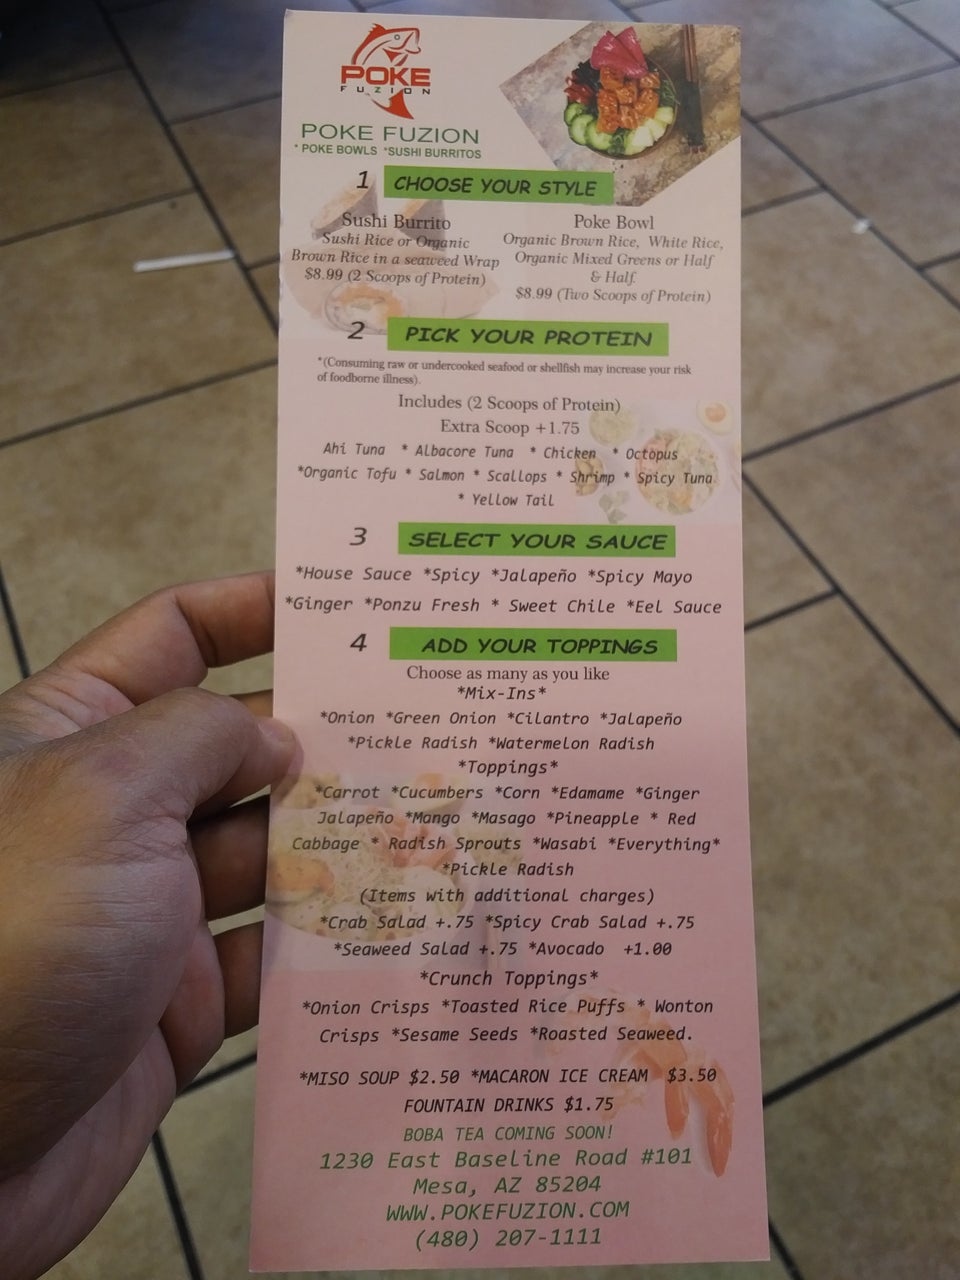 POKE
FUZION
POKE FUZION
* POKE BOWLS *SUSHI BURRITOS
1 CHOOSE YOUR STYLE
Sushi Burrito
Sushi Rice or Organic
Brown Rice in a seaweed Wrap
$8.99 (2 Scoops of Protein)
Poke Bowl
Organic Brown Rice, White Rice,
Organic Mixed Greens or Half
& Half.
$8.99 (Two Scoops of Protein)
2 PICK YOUR PROTEIN
*(Consuming raw or undercooked seafood or shellfish may increase your risk
of foodborne illness).
Includes (2 Scoops of Protein)
Extra Scoop +1.75
Ahi Tuna * Albacore Tuna * Chicken * Octopus
*Organic Tofu * Salmon * Scallops * Shrimp * Spicy Tuna
* Yellow Tail
3 SELECT YOUR SAUCE
*House Sauce *Spicy *Jalapeño *Spicy Mayo
*Ginger *Ponzu Fresh * Sweet Chile *Eel Sauce
4 ADD YOUR TOPPINGS
Choose as many as you like
*Mix-Ins*
*Onion *Green Onion *Cilantro *Jalapeño
*Pickle Radish *Watermelon Radish
*Toppings*
*Carrot *Cucumbers *Corn *Edamame *Ginger
Jalapeño *Mango *Masago *Pineapple * Red
Cabbage * Radish Sprouts *Wasabi *Everything*
*Pickle Radish
(Items with additional charges)
*Crab Salad +.75 *Spicy Crab Salad +.75
*Seaweed Salad +.75 *Avocado +1.00
*Crunch Toppings*
*Onion Crisps *Toasted Rice Puffs * Wonton
Crisps *Sesame Seeds *Roasted Seaweed.
*MISO SOUP $2.50 *MACARON ICE CREAM $3.50
FOUNTAIN DRINKS $1.75
BOBA TEA COMING SOON!
1230 East Baseline Road #101
Mesa, AZ 85204
WWW.POKEFUZION.COM
(480) 207-1111